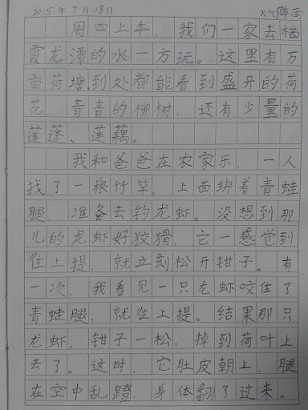 2015年7月18日 天气阵雨
周四上午，我们一家去栖
霞龙潭的水一方玩。这里有万
亩荷塘，到处都能看到盛开的荷
花，青青的柳树，还有少量的
莲蓬、莲藕。
我和爸爸在农家乐，一人
找了一根竹竿，上面绑着青蛙
腿，准备去钓龙虾。没想到那
儿的龙虾好狡猾，它一感觉到
往上提，就立刻松开钳子。有
一次，我看见一只龙虾咬住了
青蛙腿，就往上提。结果那只
龙虾，钳子一松，掉到荷叶上
去了。这时，它肚皮朝上，腿
在空中乱蹬，身体翻了过来。